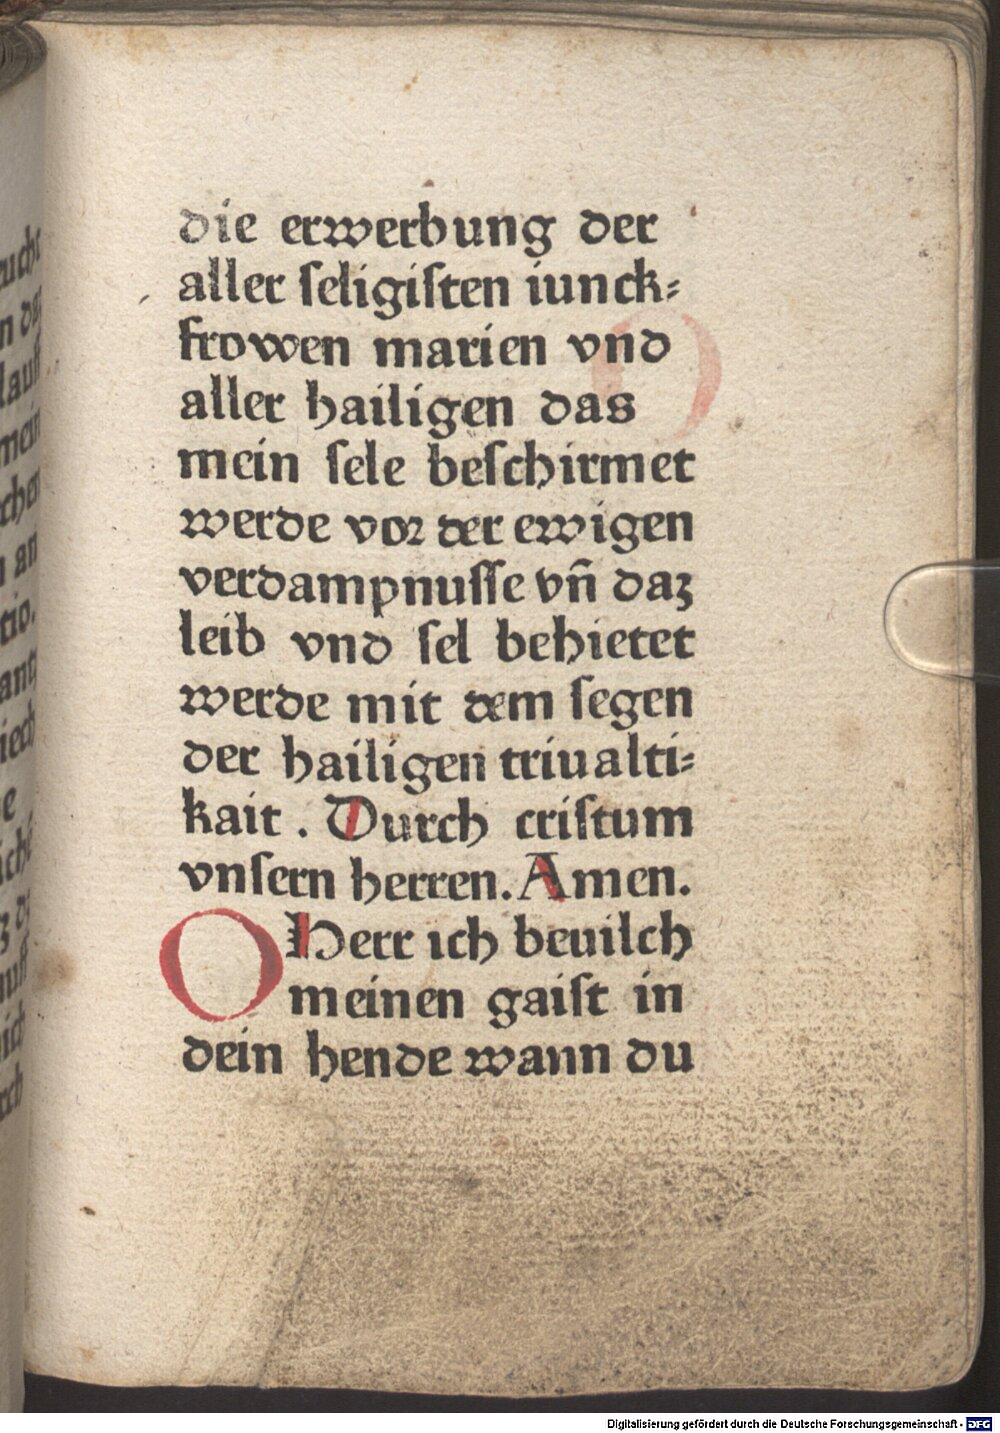 die erwerbung der
aller ſeligiſten iunck⸗
frowen marien vnd
aller hailigen das
mein ſele beſchirmet
werde voꝛ der ewigen
verdampnuſſe vn̄ daʒ
leib vnd ſel behietet
werde mit dem ſegen
der hailigen triualti⸗
kait . Durch criſtum
vnſern herren. Amen.
O Herr ich beuilch
meinen gaiſt in
dein hende wann du
Digitalisierung gefördert durch die Deutsche Forschungsgemeinschaft - DFG